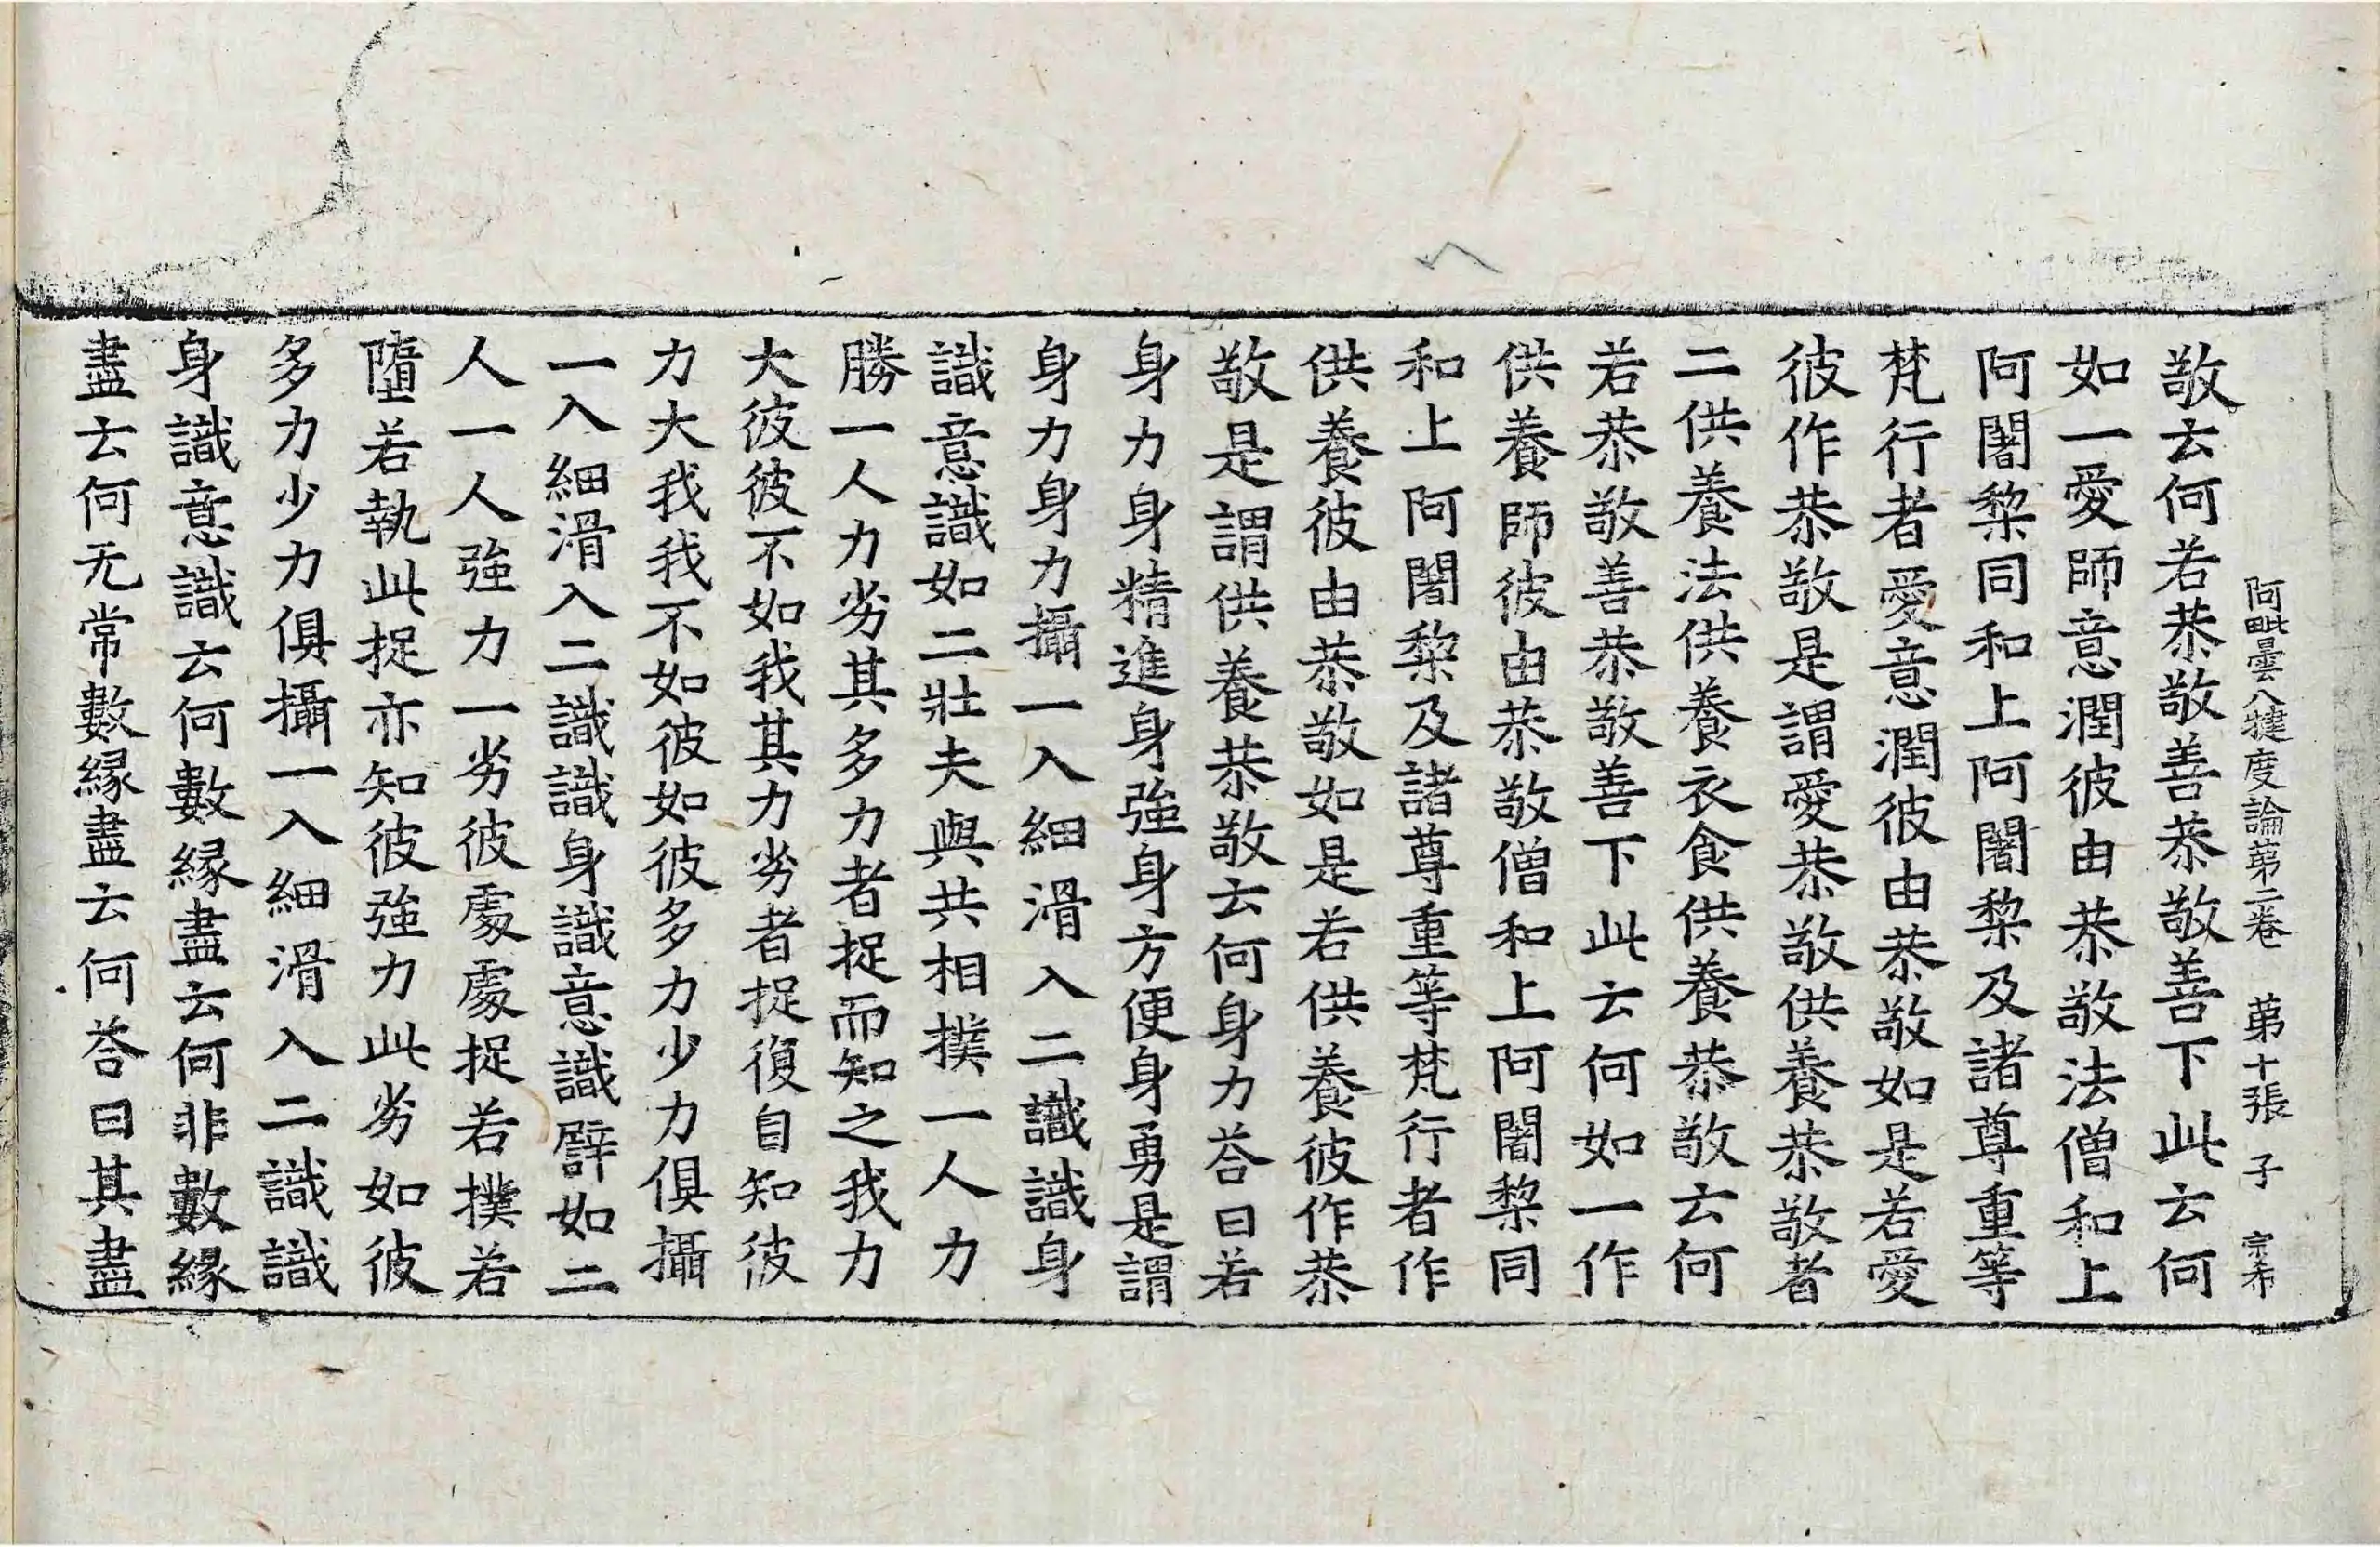 阿毗曇八犍度論第二卷 第十張 子 宗希
敬云何若恭敬善恭敬善下此云何
如一愛師意潤彼由恭敬法僧和上
阿闍梨同和上阿闍梨及諸尊重等
梵行者愛意潤彼由恭敬如是若愛
彼作恭敬是謂愛恭敬供養恭敬者
二供養法供養衣食供養恭敬云何
若恭敬善恭敬善下此云何如一作
供養師彼由恭敬僧和上阿闍梨同
和上阿闍梨及諸尊重等梵行者作
供養彼由恭敬如是若供養彼作恭
敬是謂供養恭敬云何身力荅曰若
身力身精進身強身方便身勇是謂
身力身力攝一入細滑入二識識身
識意識如二壯夫與共相撲一人力
勝一人力劣其多力者捉而知之我力
大彼彼不如我其力劣者捉復自知彼
力大我我不如彼如彼多力少力俱攝
一入細滑入二識識身識意識譬如二
人一人強力一劣彼處處捉若撲若
墮若執此捉亦知彼強力此劣如彼
多力少力俱攝一入細滑入二識識
身識意識云何數緣盡云何非數緣
盡云何无常數緣盡云何荅曰其盡